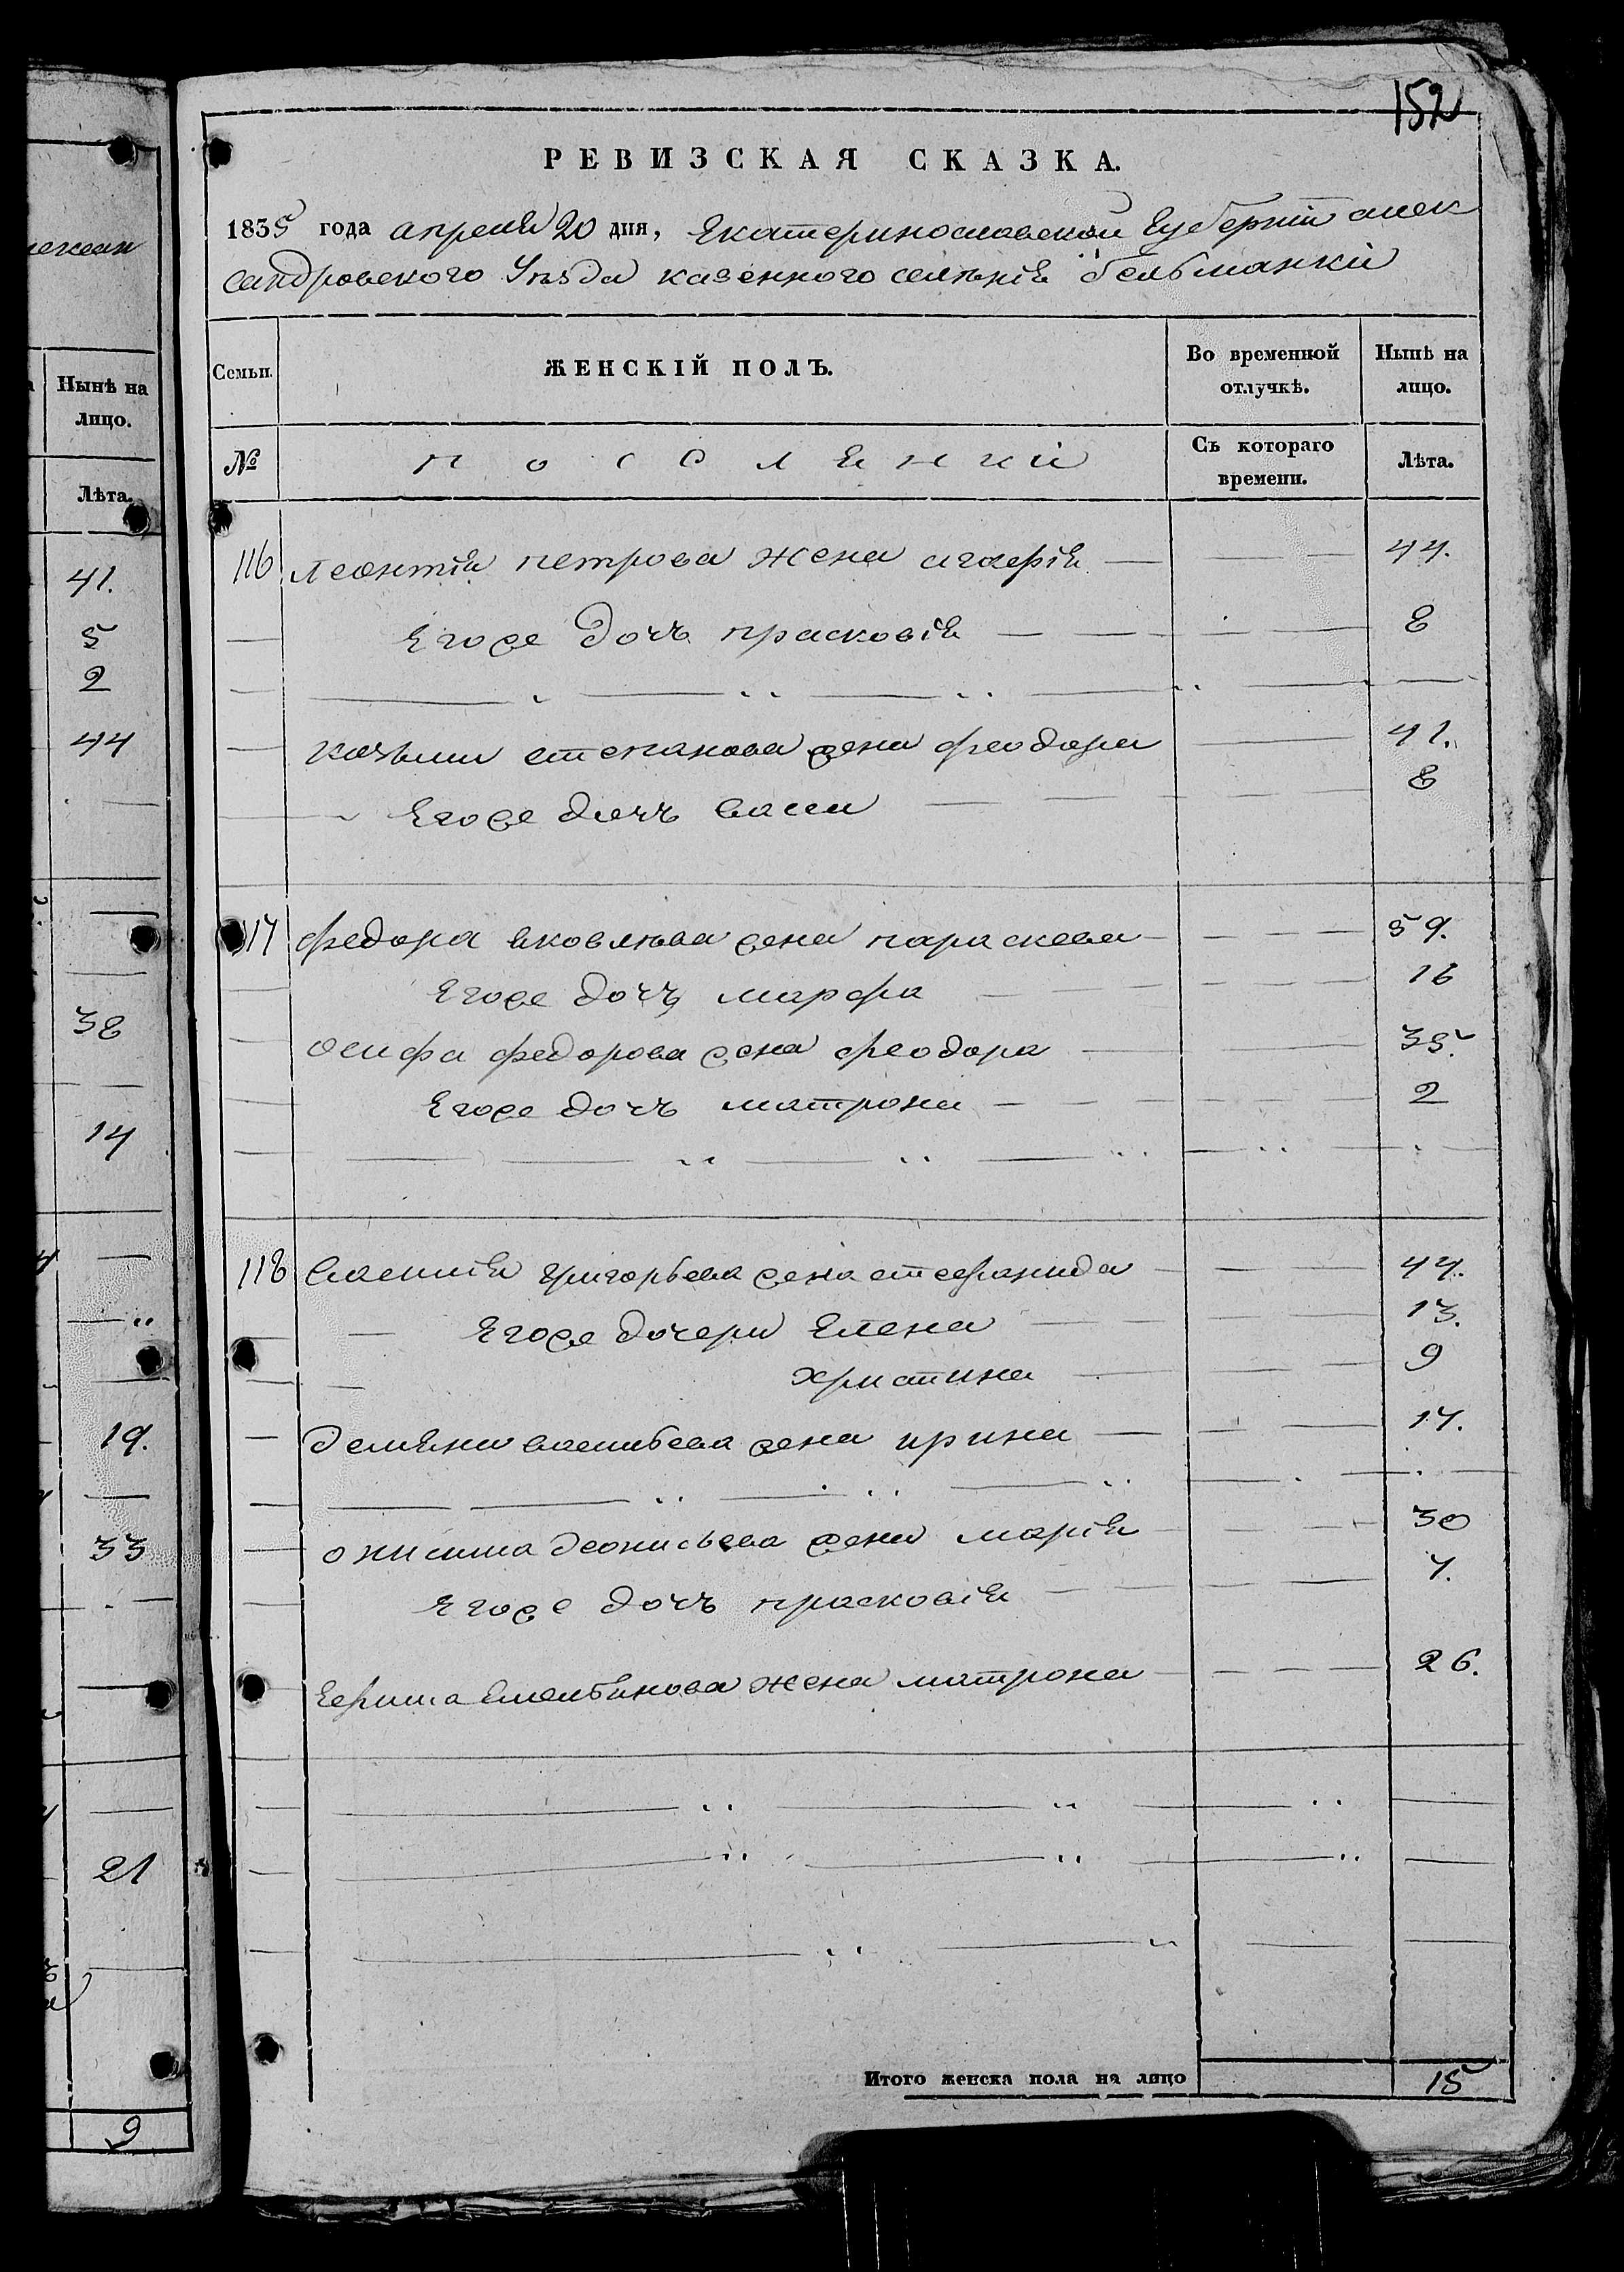 152
РЕВИЗСКАЯ СКАЗКА.
1835 года апреля 20 дня, Екатеринославской Губернїи алек
сандровского Уѣзда казенного селѣнїя Гельманки
Семьи. ЖЕНСКІЙ ПОЛЪ. Во временной отлучкѣ. Нынѣ на лицо.
№ поселянки Съ котораго времени. Лѣта.
116 Леонтїя петрова жена агафїя — — 44.
Егоже дочь прасковїя — — 8
козьмы степанова жена феодора — 41.
Егоже дочь васса — — 8
117 федора яковлѣва жена параскева — — — 59.
Егоже дочь марфа — — — 16
осифа федорова жена феодора — 35.
Егоже дочь матрона — — — 2
118 василїя григорьева жена стефанида — — 44.
Егоже дочери Елена — — 13.
христина — — 9
демяна васильева жена ирина — — 17.
онисима деонисьева жена марїя — — 30
Егоже дочь прасковїя — — 7.
Ефима Емельянова жена матрона — — — 26.
Итого женска пола на лицо 15
Нынѣ на лицо.
Лѣта.
41.
5
2
44
38
14
19.
33
21
9